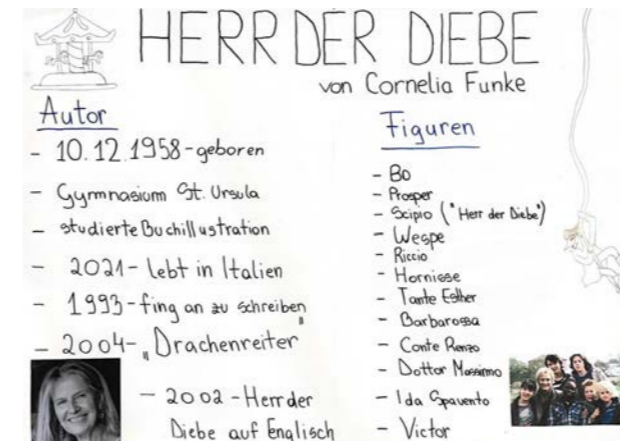 HERR DER DIEBE
von Cornelia Funke
Autor
- 10.12.1958-geboren
- Gymnasium St. Ursula
- studierte Buchillustration
- 2021- lebt in Italien
- 1993-fing an zu schreiben
- 2004- „Drachenreiter"
- 2002 -Herr der
Diebe auf Englisch
Figuren
- Bo
- Prosper
- Scipio ("Herr der Diebe")
- Wespe
- Riccio
- Hornisse
- Tante Esther
- Barbarossa
- Conte Renzo
- Dottor Massimo
- Ida Spavento
- Victor